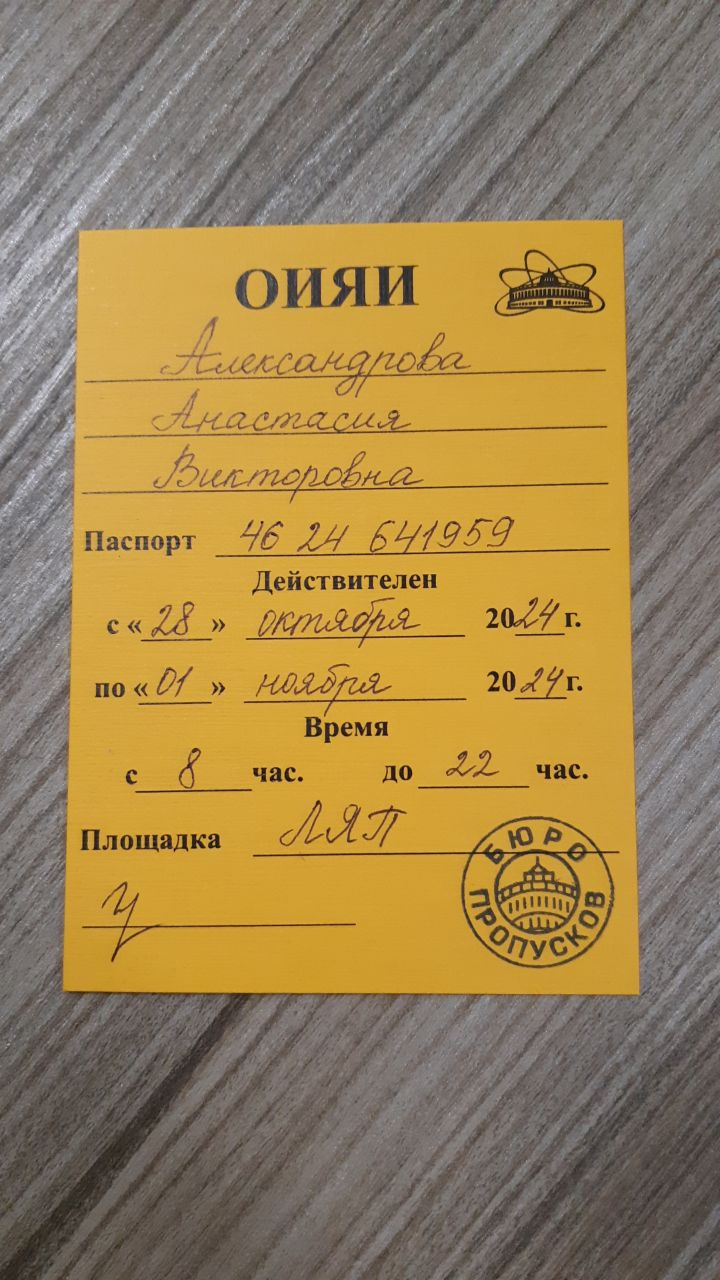 ОИЯИ
Александрова
Анастасия
Викторовна
Паспорт 46 24 641959
Действителен
с «28» октября 2024 г.
по «01» ноября 2024 г.
Время
с 8 час. до 22 час.
Площадка ЛЯП
БЮРО
ПРОПУСКОВ